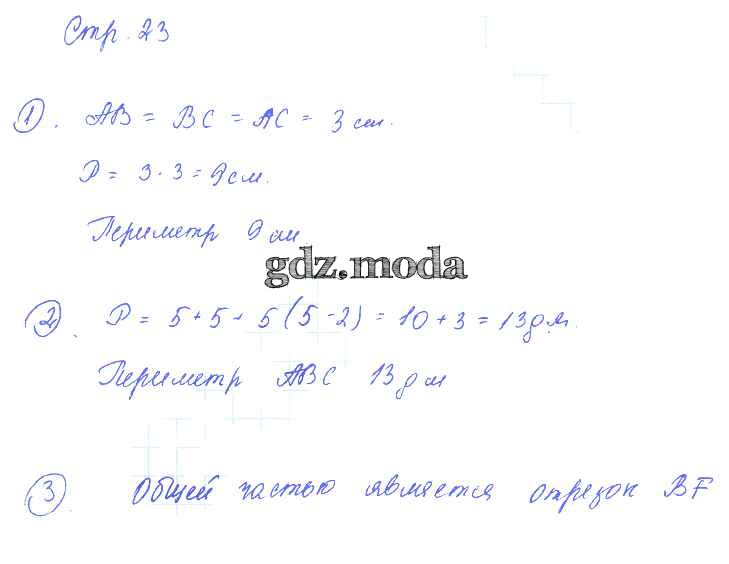 Стр. 23
1. AB = BC = AC = 3 см.
P = 3 · 3 = 9 см.
Периметр 9 см
gdz.moda
2. P = 5 + 5 + 5 (5 - 2) = 10 + 3 = 13 дм.
Периметр ABC 13 дм
3. Общей частью является отрезок BF